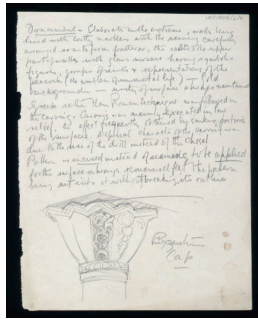 Ornament – Elaborate in the extreme, walls being
lined with costly marbles with the veining carefully
arranged so as to form patterns, the vaults & the upper
part of walls with glass mosaic having symbolic
figures, groups of saints & representations of the
peacock (the emblem of immortal life) – gold
background – surface always maintained
Greek rather than Roman technique was followed in
the carving. Carving was mainly executed in low
relief, & effect frequently obtained by sinking portions
of the surfaces. A special character of the carving was
due to the use of the drill instead of the chisel
Pattern is incised instead of seeming to be applied
for the surface always remained flat. The pattern
being cut into it without breaking its outline
Byzantine
Cap